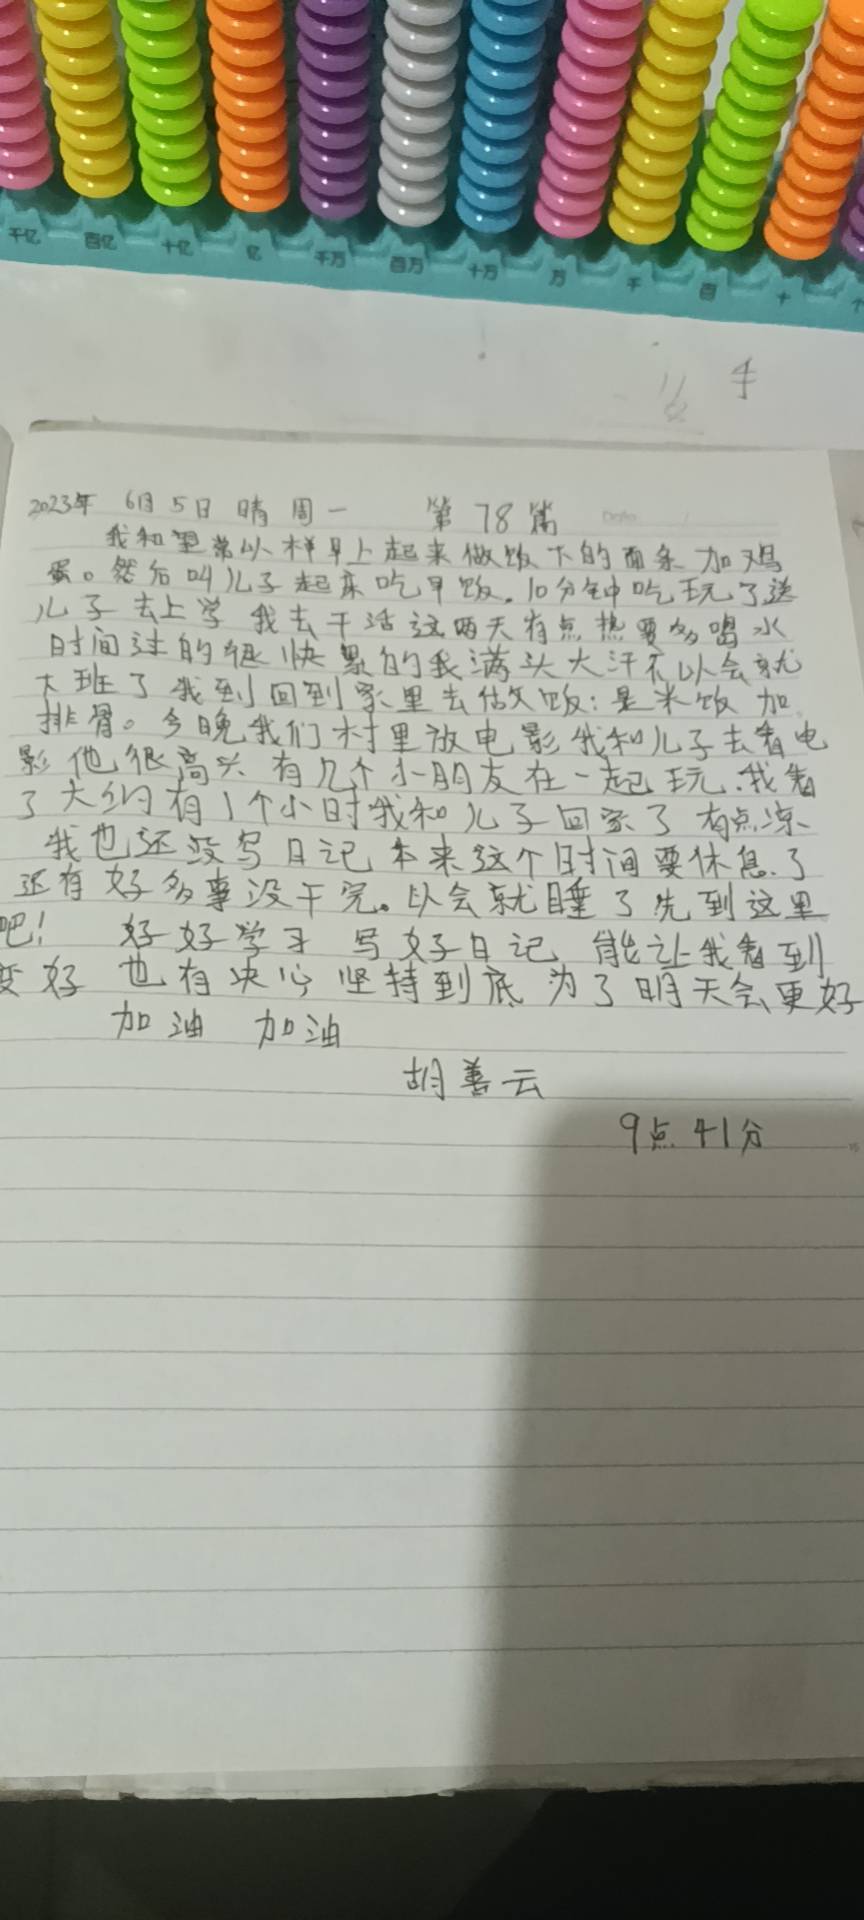 千亿 百亿 十亿 亿 千万 百万 十万 万 千 百 十 个
2023年 6月5日 晴 周一 第78篇
我和里常以样早上起来做饭下的面条加鸡
蛋。然后叫儿子起床吃早饭.10分钟吃玩了送
儿子去上学 我去干活这两天有点热要多喝水
时间过的很快累的我满头大汗不以会就
下班了我到回到家里去做饭:是米饭加
排骨。今晚我们村里放电影我和儿子去看电
影他很高兴 有几个小朋友在一起玩.我看
了大约有1个小时我和儿子回家了 有点凉
我也还没写日记本来这个时间要休息了
还有好多事没干完。以会就睡了先到这里
吧! 好好学习 写好日记 能让我看到
变好 也有决心坚持到底 为了明天会更好
加油 加油
胡善云
9点41分